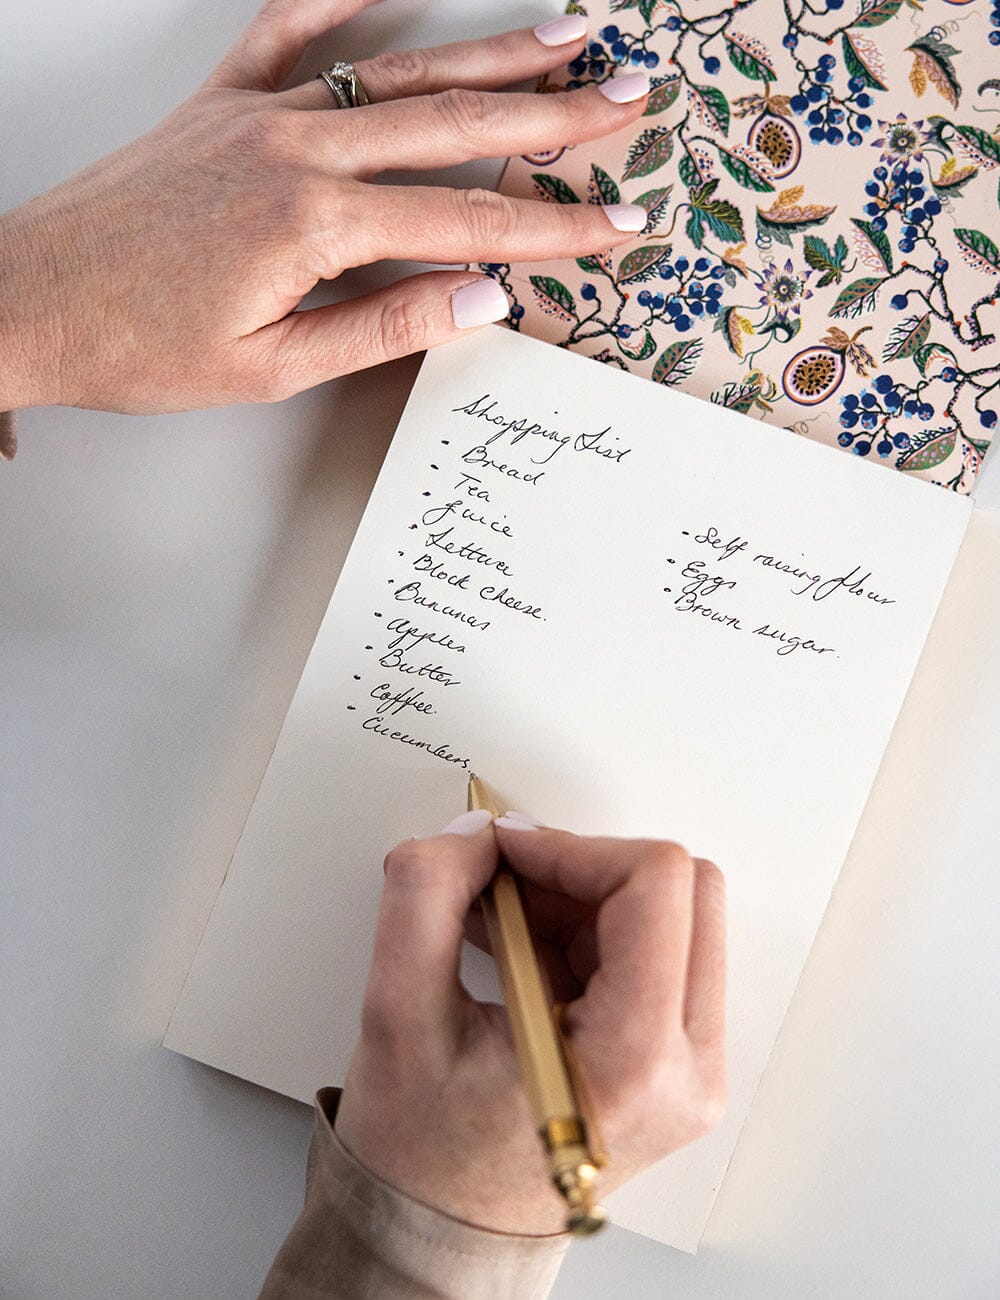 Shopping List
• Bread
• Tea
• Juice
• Lettuce
• Block Cheese.
• Bananas
• Apples
• Butter
• Coffee.
• Cucumbers.
• Self raising flour
• Eggs
• Brown sugar.